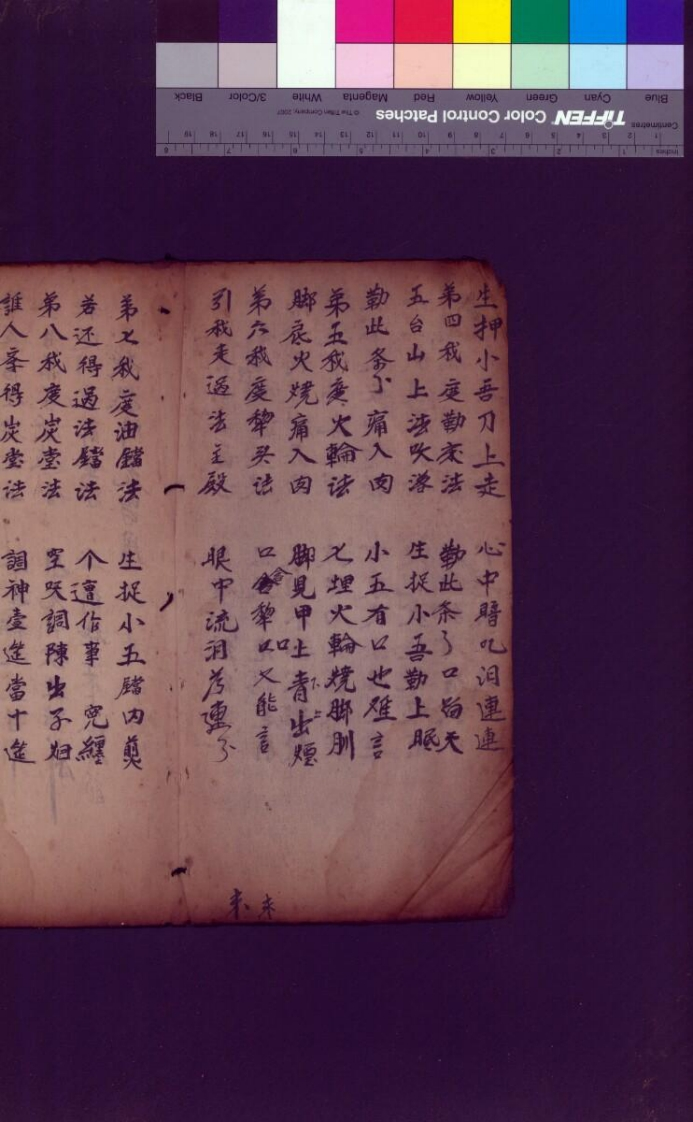 Blue Cyan Green Yellow Red Magenta White 3/Color Black
Centimetres TIFFEN Color Control Patches © The Tiffen Company, 2007
Inches
生押小吾刀上走 心中暗 泪連連
第四我度勒床法 勒此条了口旨天
五台山上法 生捉小吾勤上眠
勒此条了痛入肉 小五有口也难言
第五我度火輪法 七埋火輪燒脚
脚底火燒痛入肉 脚見甲上青出
第六我度犂头法 口含犂口又能言
引我走過法主殿 眼中流泪 連了
第七我度油鐺法 生捉小五鐺内
若还得過法鐺法 个遭作事 冤纏
第八我度炭堂法 調陳出子
誰人 得炭堂法 調神 進當十進
来 来